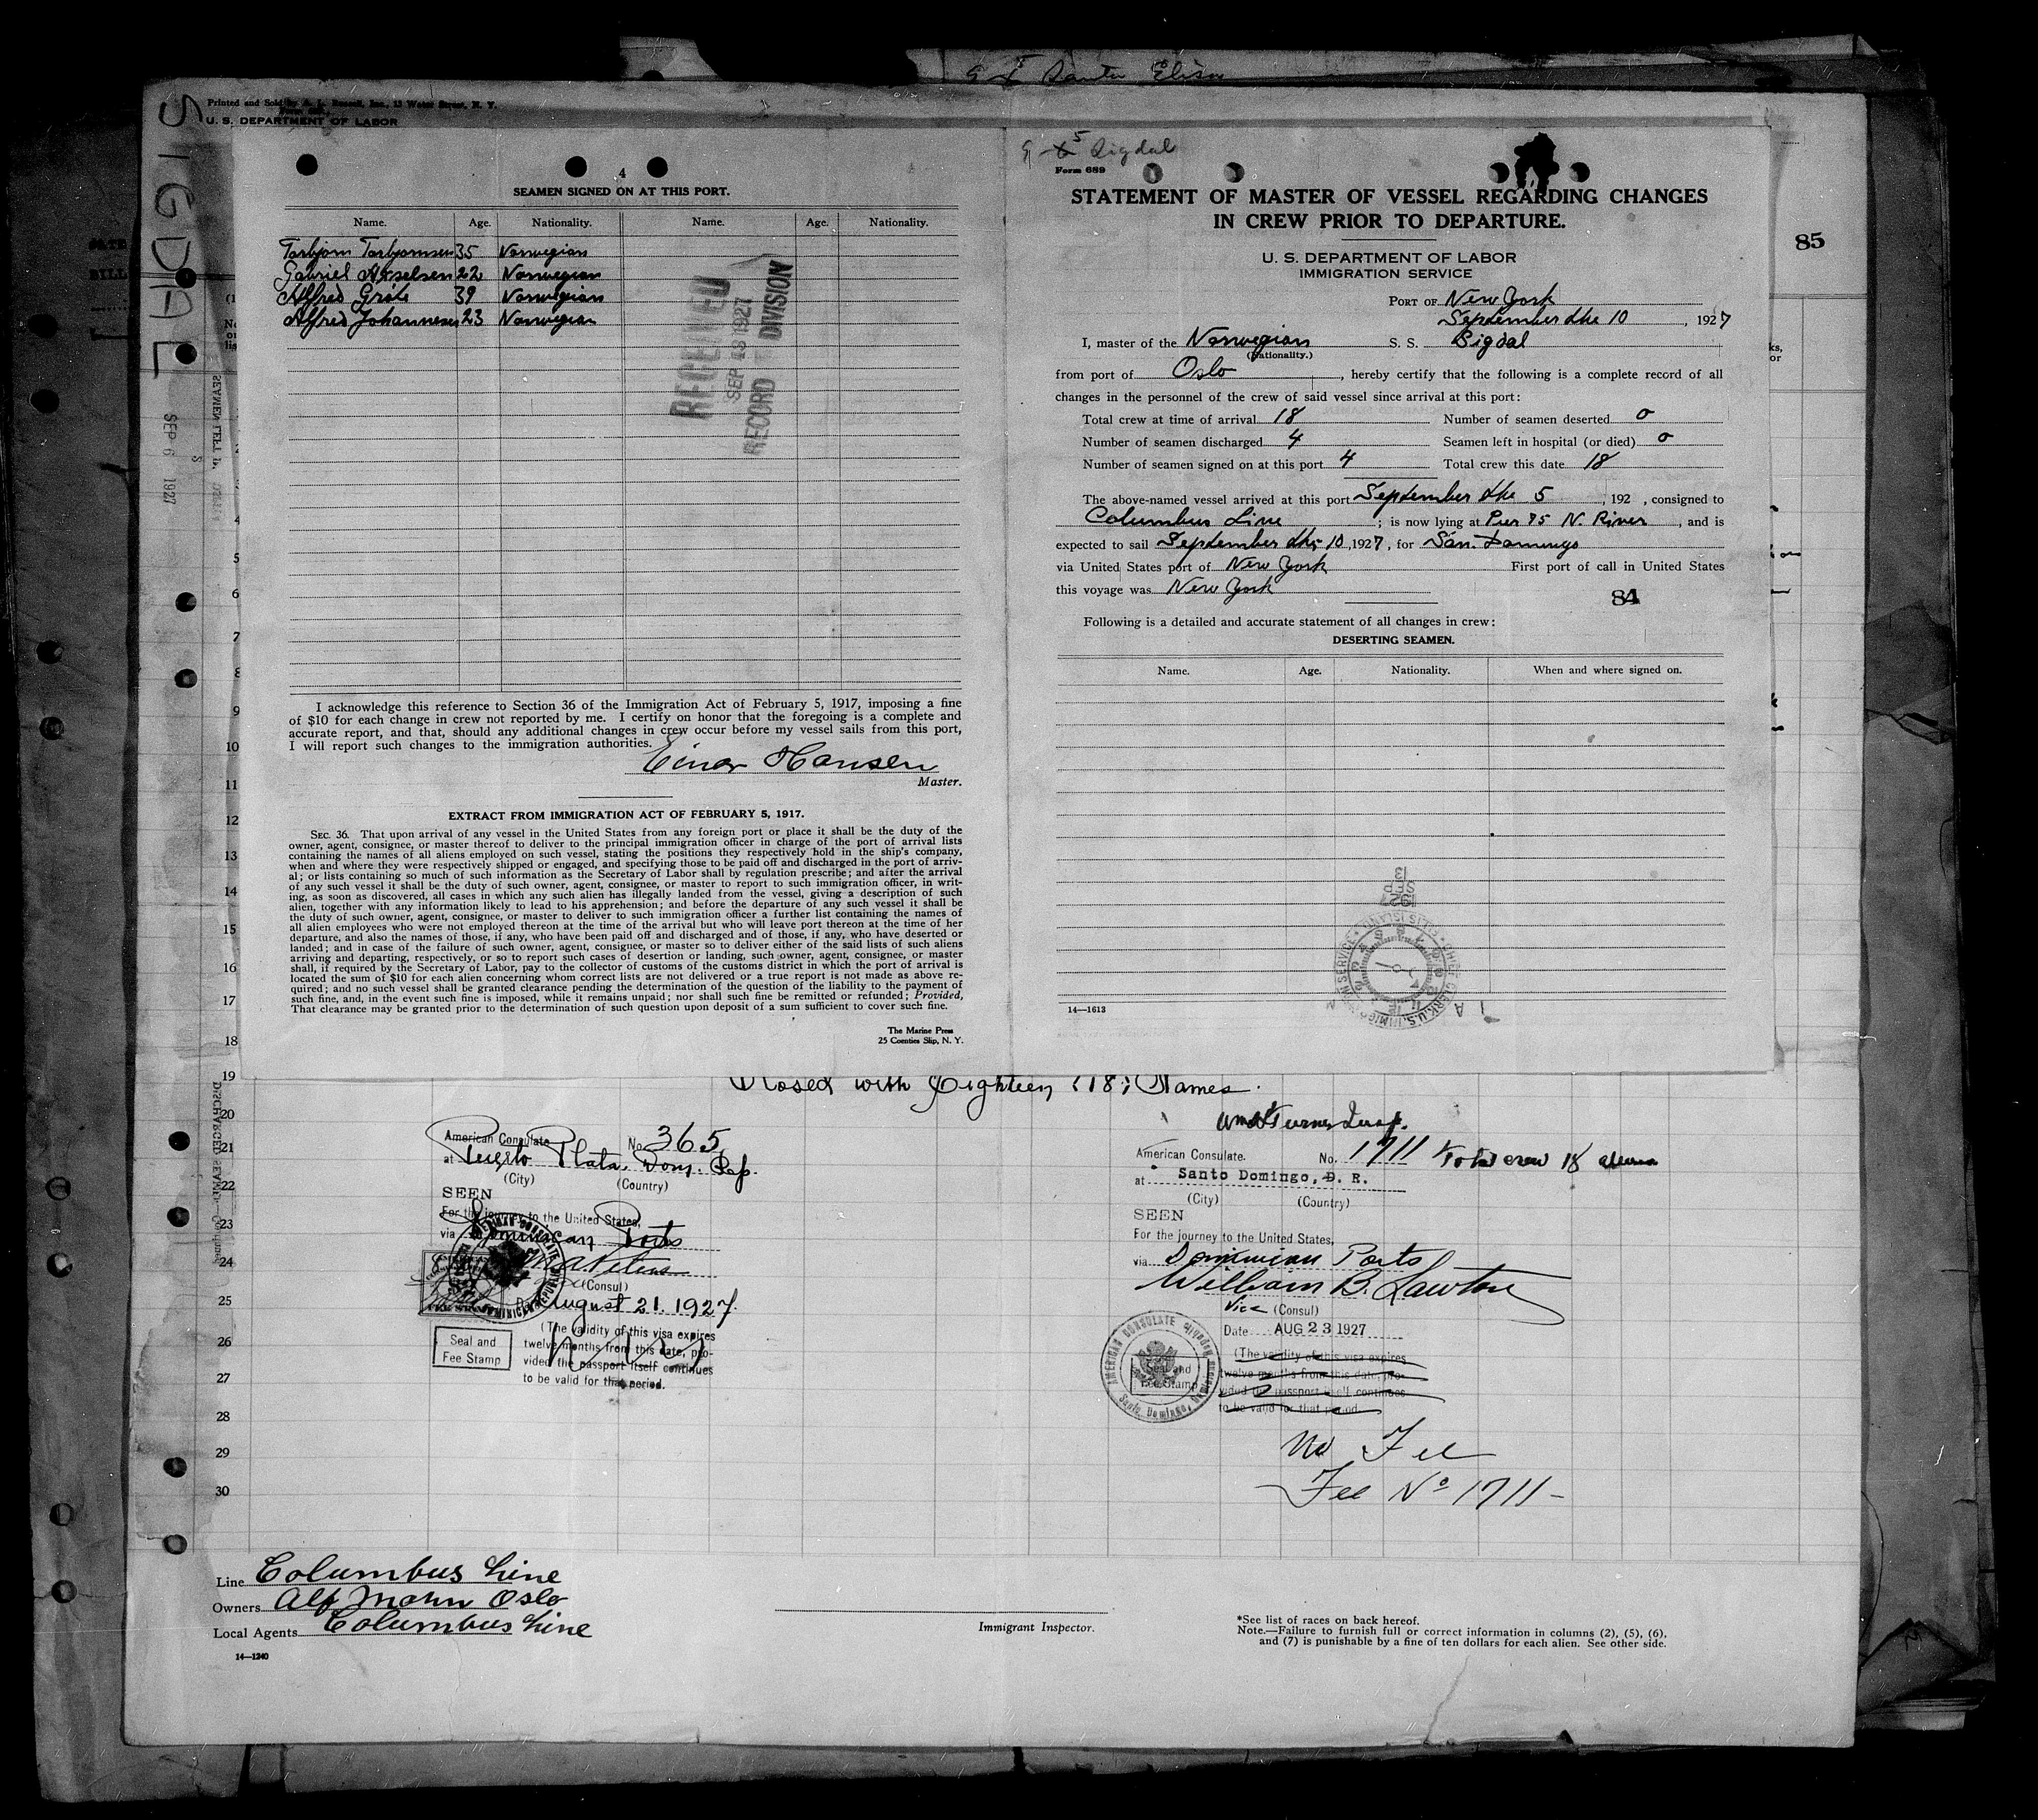 Santa Elisa
Printed and Sold by A. L. Russell, Inc., 13 Water Street, N. Y.
U. S. DEPARTMENT OF LABOR
SIGDAL
SEP 6 1927
4
SEAMEN SIGNED ON AT THIS PORT.
Name. Age. Nationality. Name. Age. Nationality.
Torbjorn Torbjornsen 35 Norwegian
Gabriel Axselsen 22 Norwegian
Alfred Grôte 39 Norwegian
Alfred Johannesen 23 Norwegian
RECEIVED
SEP 13 1927
RECORD DIVISION
I acknowledge this reference to Section 36 of the Immigration Act of February 5, 1917, imposing a fine
of $10 for each change in crew not reported by me. I certify on honor that the foregoing is a complete and
accurate report, and that, should any additional changes in crew occur before my vessel sails from this port,
I will report such changes to the immigration authorities.
Einar Hansen
Master.
EXTRACT FROM IMMIGRATION ACT OF FEBRUARY 5, 1917.
SEC. 36. That upon arrival of any vessel in the United States from any foreign port or place it shall be the duty of the
owner, agent, consignee, or master thereof to deliver to the principal immigration officer in charge of the port of arrival lists
containing the names of all aliens employed on such vessel, stating the positions they respectively hold in the ship's company,
when and where they were respectively shipped or engaged, and specifying those to be paid off and discharged in the port of arriv-
al; or lists containing so much of such information as the Secretary of Labor shall by regulation prescribe; and after the arrival
of any such vessel it shall be the duty of such owner, agent, consignee, or master to report to such immigration officer, in writ-
ing, as soon as discovered, all cases in which any such alien has illegally landed from the vessel, giving a description of such
alien, together with any information likely to lead to his apprehension; and before the departure of any such vessel it shall be
the duty of such owner, agent, consignee, or master to deliver to such immigration officer a further list containing the names of
all alien employees who were not employed thereon at the time of the arrival but who will leave port thereon at the time of her
departure, and also the names of those, if any, who have been paid off and discharged and of those, if any, who have deserted or
landed; and in case of the failure of such owner, agent, consignee, or master so to deliver either of the said lists of such aliens
arriving and departing, respectively, or so to report such cases of desertion or landing, such owner, agent, consignee, or master
shall, if required by the Secretary of Labor, pay to the collector of customs of the customs district in which the port of arrival is
located the sum of $10 for each alien concerning whom correct lists are not delivered or a true report is not made as above re-
quired; and no such vessel shall be granted clearance pending the determination of the question of the liability to the payment of
such fine, and, in the event such fine is imposed, while it remains unpaid; nor shall such fine be remitted or refunded; Provided,
That clearance may be granted prior to the determination of such question upon deposit of a sum sufficient to cover such fine.
The Marine Press
25 Coenties Slip, N. Y.
9-5 Sigdal
Form 689
STATEMENT OF MASTER OF VESSEL REGARDING CHANGES
IN CREW PRIOR TO DEPARTURE.
U. S. DEPARTMENT OF LABOR
IMMIGRATION SERVICE
PORT OF New York
September the 10, 1927
I, master of the Norwegian S. S. Sigdal
(Nationality.)
from port of Oslo, hereby certify that the following is a complete record of all
changes in the personnel of the crew of said vessel since arrival at this port:
Total crew at time of arrival 18 Number of seamen deserted 0
Number of seamen discharged 4 Seamen left in hospital (or died) 0
Number of seamen signed on at this port 4 Total crew this date 18
The above-named vessel arrived at this port September the 5, 192 , consigned to
Columbus Line; is now lying at Pier 75 N. River, and is
expected to sail September the 10, 1927, for San. Domingo
via United States port of New York First port of call in United States
this voyage was New York
84
Following is a detailed and accurate statement of all changes in crew:
DESERTING SEAMEN.
Name. Age. Nationality. When and where signed on.
1927
SEP
13
14—1613
85
4
5
6
7
8
9
10
11
12
13
14
15
16
17
18
19
20
21
22
23
24
25
26
27
28
29
30
Closed with Eighteen (18) Names.
American Consulate No. 365
at Puerto Plata, Dom. Rep.
(City) (Country)
SEEN
For the journey to the United States,
via Dominican Ports
(Consul)
August 21. 1927.
(The validity of this visa expires
twelve months from this date, pro-
vided the passport itself continues
to be valid for that period.
Seal and
Fee Stamp
Turner Insp.
American Consulate. No. 1711 Total crew 18 aliens
at Santo Domingo, D. R.
(City) (Country)
SEEN
For the journey to the United States,
via Dominican Ports
William B. Lawton
Vice (Consul)
Date AUG 23 1927
(The validity of this visa expires
twelve months from this date, pro-
vided the passport itself continues
to be valid for that period.
AMERICAN CONSULATE
Santo Domingo, Dominican Republic
Seal and
Fee Stamp
No Fee
Fee No 1711-
Line Columbus Line
Owners Alf Mohn Oslo
Local Agents Columbus Line
14—1240
Immigrant Inspector.
*See list of races on back hereof.
Note.—Failure to furnish full or correct information in columns (2), (5), (6),
and (7) is punishable by a fine of ten dollars for each alien. See other side.